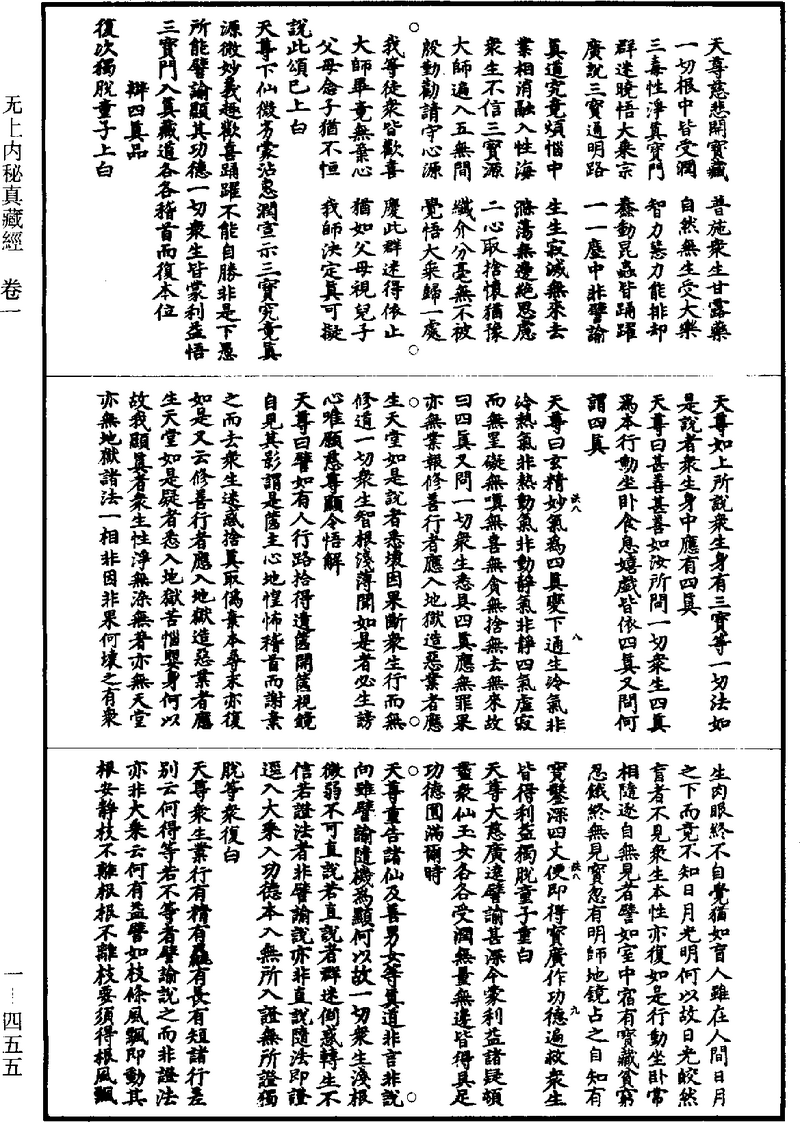 天尊慈悲開寶藏　普施衆生甘露藥
一切根中皆受潤　自然無生受大樂
三毒性淨真寶門　智力慧力能排却
群迷曉悟大乘宗　蠢動昆蟲皆踊躍
廣說三寶通明路　一一塵中非譬諭
真道究竟煩惱中　生生寂滅無來去
業相消融入性海　滌蕩無邊絕思慮
衆生不信三寶源　二心取捨懷猶豫
大師遍入五無間　纖介分毫無不被
殷勤勸請守心源　覺悟大乘歸一處
我等徒衆皆歡喜　慶此群迷得依止
大師畢竟無棄心　猶如父母視兒子
父母念子猶不恒　我師決定真可擬
說此頌已上白
天尊下仙微劣蒙沾惠潤宣示三寶究竟真
源微妙義趣歡喜踊躍不能自勝非是下愚
所能譬諭顯其功德一切衆生皆蒙利益悟
三寶門入真藏道各各稽首而復本位
辯四真品
復次獨脫童子上白
天尊如上所說衆生身有三寶等一切法如
是說者衆生身中應有四真
天尊曰甚善甚善如汝所問一切衆生四真
為本行動坐卧食息嬉戲皆依四真又問何
謂四真
天尊曰玄精妙氣為四真變下通生冷氣非
冷熱氣非熱動氣非動靜氣非靜四氣虛寂
而無罣礙無嗔無喜無貪無捨無去無來故
曰四真又問一切衆生悉具四真應無罪果
亦無業報修善行者應入地獄造惡業者應
生天堂如是說者悉壞因果斷衆生行而無
修道一切衆生智根淺薄聞如是者必生謗
心唯願慈尊顯令悟解
天尊曰譬如有人行路拾得遺篋開篋視鏡
自見其影謂是篋主心地惶怖稽首而謝棄
之而去衆生迷惑捨真取偽棄本尋末亦復
如是又云修善行者應入地獄造惡業者應
生天堂如是疑者悉入地獄苦惱嬰身何以
故我顯真者衆生性淨無染無著亦無天堂
亦無地獄諸法一相非因非果何壞之有衆
生肉眼終不自覺猶如盲人雖在人間日月
之下而竟不知日月光明何以故日光皎然
盲者不見衆生本性亦復如是行動坐卧常
相隨逐自無見者譬如室中宿有寶藏貧窮
忍餓終無見寶忽有明師地鏡占之自知有
寶鑿深四丈便即得寶廣作功德遍救衆生
皆得利益獨脫童子重白
天尊大慈廣遠譬諭甚深今蒙利益諸疑頓
盡衆仙玉女各各受潤無量無邊皆得具足
功德圓滿爾時
天尊重告諸仙及善男女等真道非言非說
向雖譬諭隨機為顯何以故一切衆生淺根
微弱不可直說若直說者群迷倒惑轉生不
信若證法者非譬諭說亦非直說隨法即證
逕入大乘入功德本入無所入證無所證獨
脫等衆復白
天尊衆生業行有精有麤有長有短諸行差
別云何得等若不等者譬諭說之而非證法
亦非大乘云何有益譬如枝條風飄即動其
根安靜枝不離根根不離枝要須得根風飄
无上内秘真藏經　卷一
一—四五五